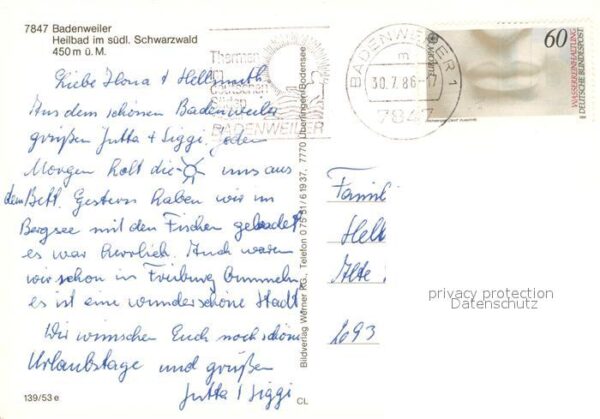 7847 Badenweiler
Heilbad im südl. Schwarzwald
450 m ü. M.
Liebe Ilona & Hellmuth
Aus dem schönen Badenweiler
grüßen Jutta + Siggi. Jeden
Morgen holt die uns aus
dem Bett. Gestern haben wir im
Bergsee mit den Fischen gebadet
es war herrlich. Auch waren
wir schon in Freiburg bummeln
es ist eine wunderschöne Stadt
Wir wünschen Euch noch schöne
Urlaubstage und grüßen
Jutta + Siggi
139/53 e
CL
Bildverlag Werner KG., Telefon 0 75 51 / 6 19 37, 7770 Überlingen/Bodensee
Thermen
im
deutschen
Süden
BADENWEILER
BADENWEILER 1
m
30.7.86-17
7847
EUROPA
60
WASSERREINHALTUNG
DEUTSCHE BUNDESPOST
Famil
Hell
Alte
2093
privacy protection
Datenschutz